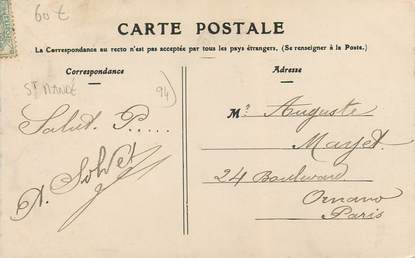 60 €
CARTE POSTALE
La Correspondance au recto n'est pas acceptée par tous les pays étrangers, (Se renseigner à la Poste.)
Correspondance
Adresse
ST MANDÉ
94)
Salut. P.....
A. Solvet
Mr Auguste
Mayet.
24 Boulevard
Ornano
Paris